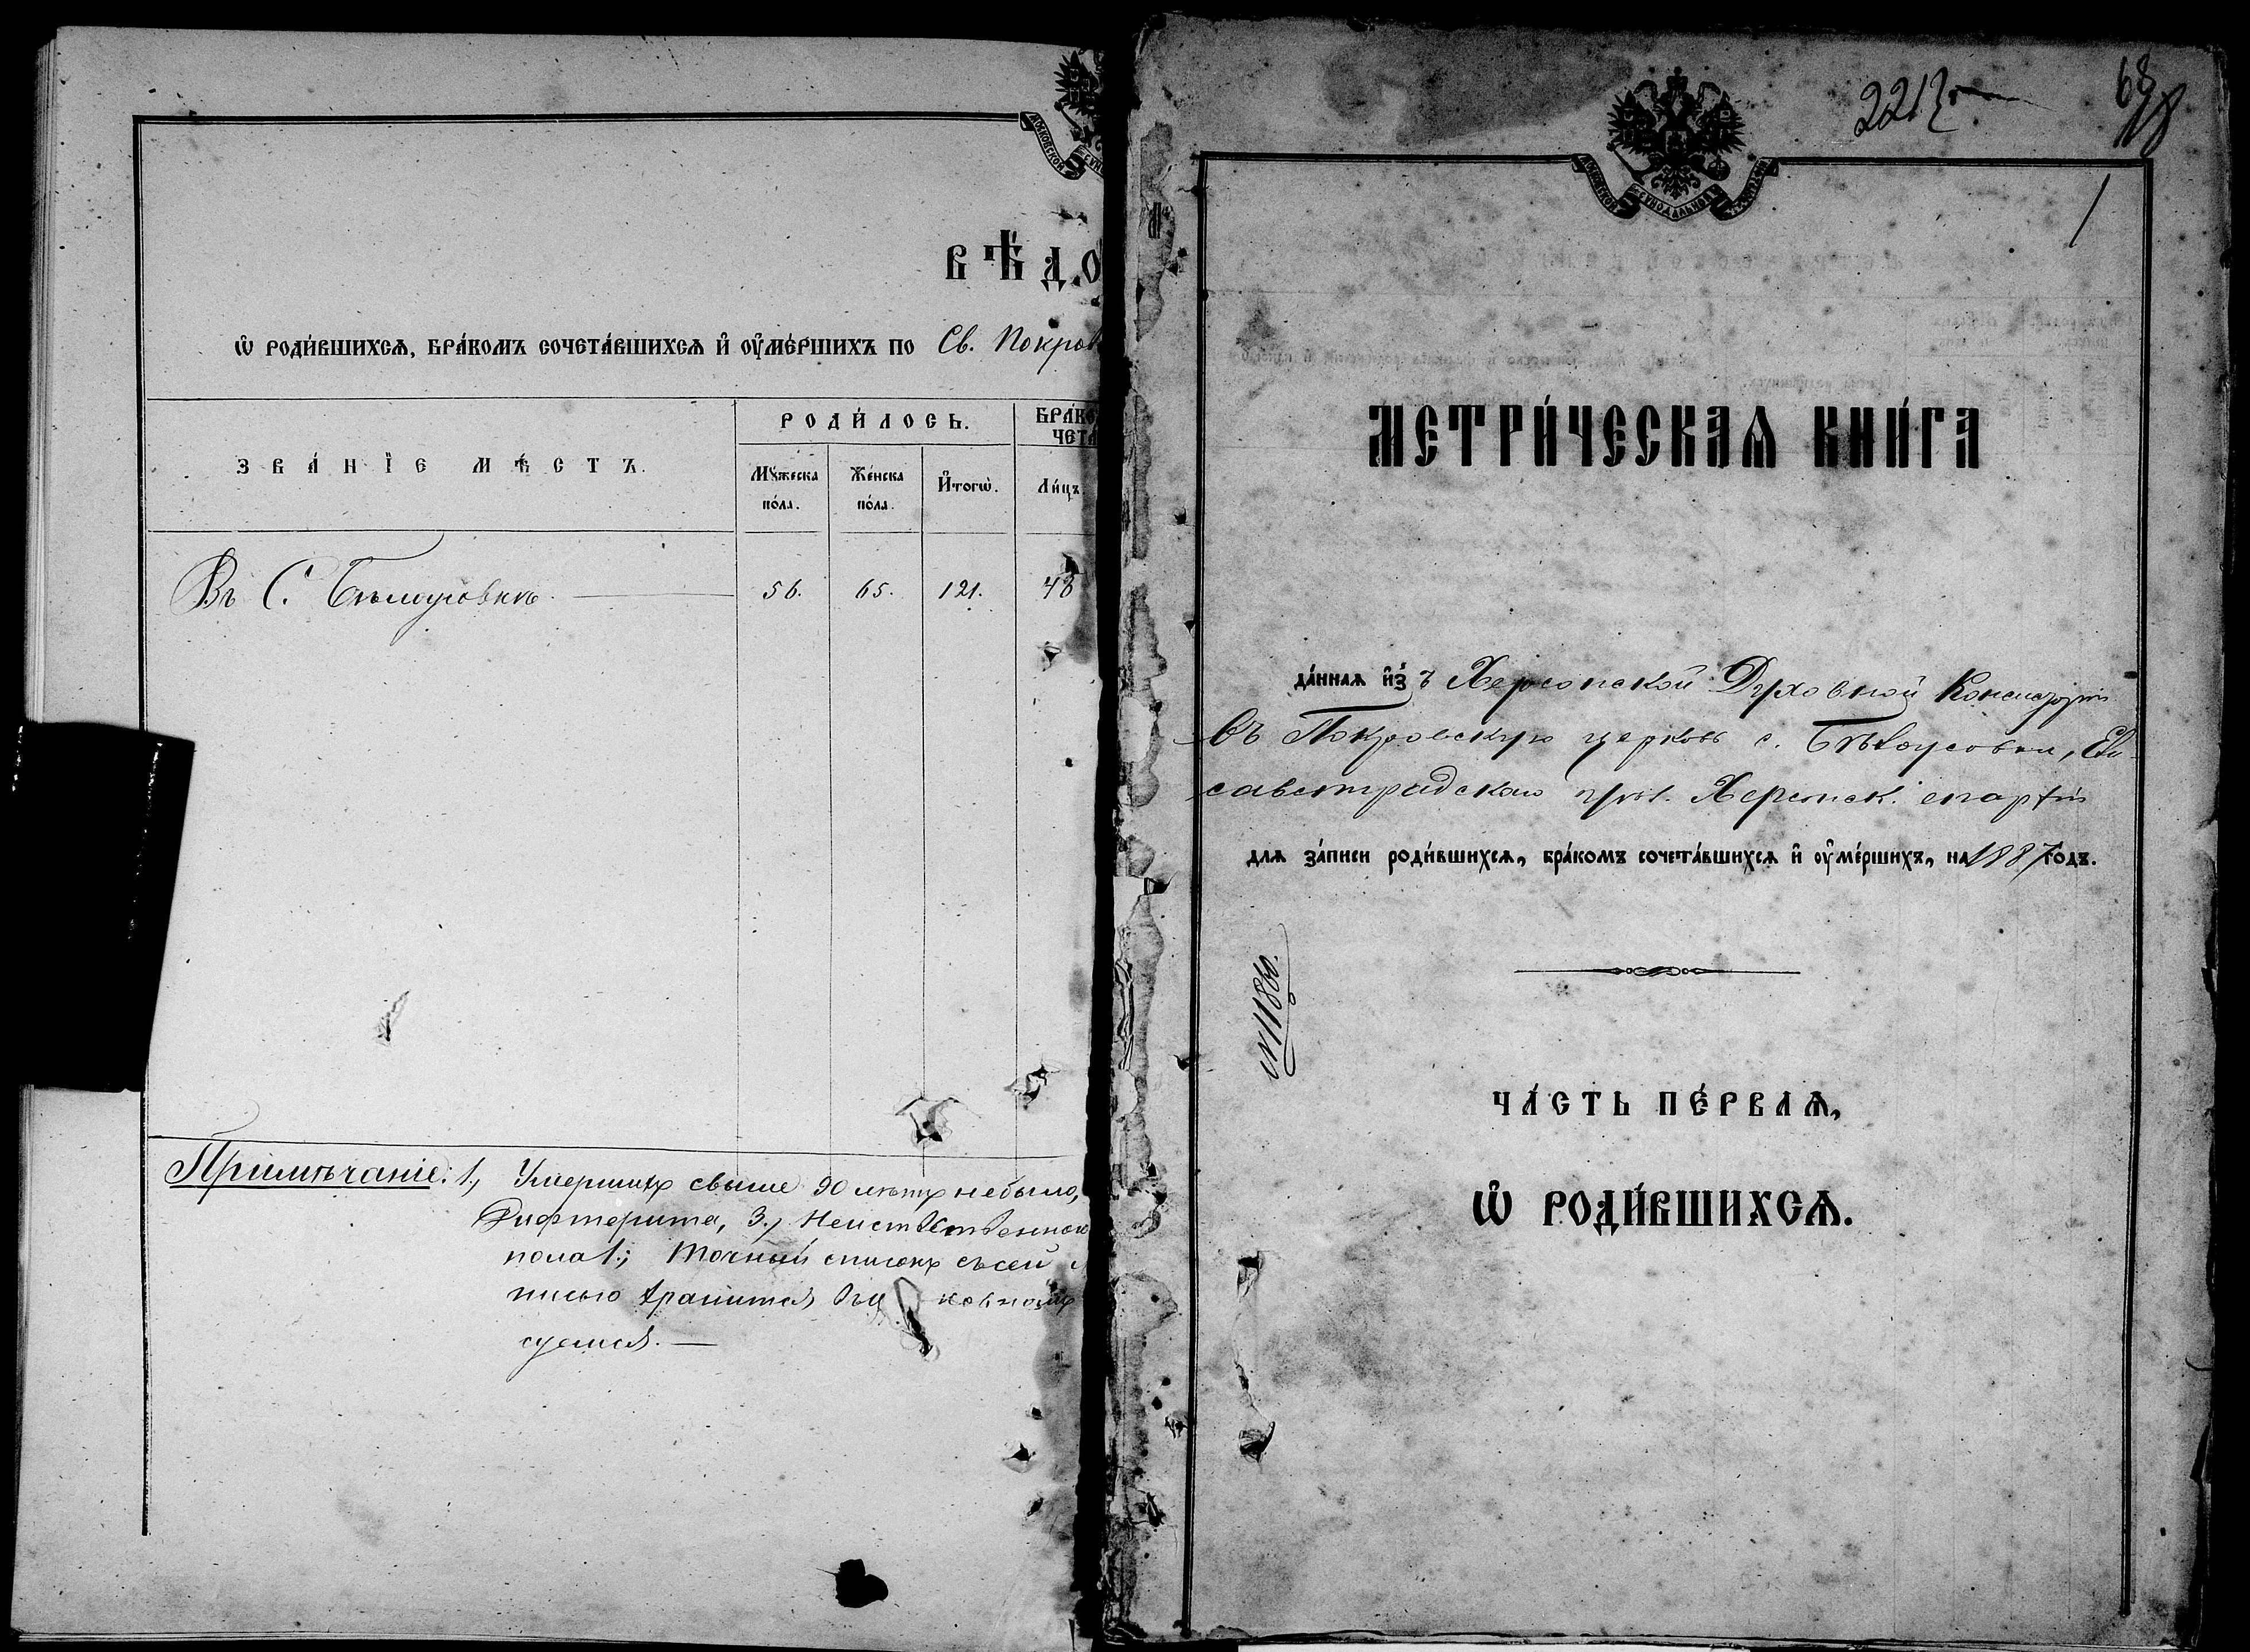 ВѢДО
Ѡ РОДИ́ВШИХСѦ, БРА́КОМЪ СОЧЕТА́ВШИХСѦ И҆ ОУ҆МЕ́РШИХЪ ПО Св. Покров
ЗВА́НІЕ МѢ́СТЪ.
РОДИ́ЛОСЬ.
БРА́КО
ЧЕТА
Мꙋ́жеска по́ла.
Же́нска по́ла.
И҆того̀.
Ли́цъ
Въ С. Бѣлоусовкѣ
56.
65.
121.
48
Примѣчаніе: 1., Умершихъ свыше 90 лѣтъ небыло,
Дифтерита, 3., Неистественно
пола 1.; Точный списокъ съсей
писью хранится
2212
68
1
МОСКОВСКОЙ СѴНОДАЛЬНОЙ
МЕТРИ́ЧЕСКАѦ КНИ́ГА
да́ннаѧ и҆зъ Херсонской Духовной Консисторіи
въ Покровскую церковь с. Бѣлоусовки, Ели-
саветградскаго Херсонск. епархіи
длѧ за́писи роди́вшихсѧ, бра́комъ сочета́вшихсѧ и҆ оу҆ме́ршихъ, на 1887 годъ.
№ 11860.
ЧА́СТЬ ПЕ́РВАѦ,
Ѡ РОДИ́ВШИХСѦ.